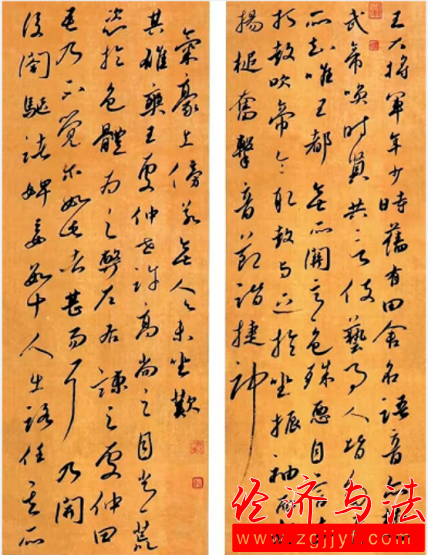 王大將軍年少時舊有田舍名語音亦楚
武帝喚時賢共言伎藝事人皆多
所知唯王都無所關意色殊惡自言知
打鼓吹帝令取鼓與之於坐振袖而
揚槌奮擊音節諧捷神
氣豪上傍若無人舉坐歎
其雄爽王處仲世許高尚之目嘗荒
恣於色體為之弊左右諫之處仲曰
吾乃不覺爾如此者甚易耳乃開
後閤驅諸婢妾數十人出路任其所
经济与法
www.zgjjyf.com